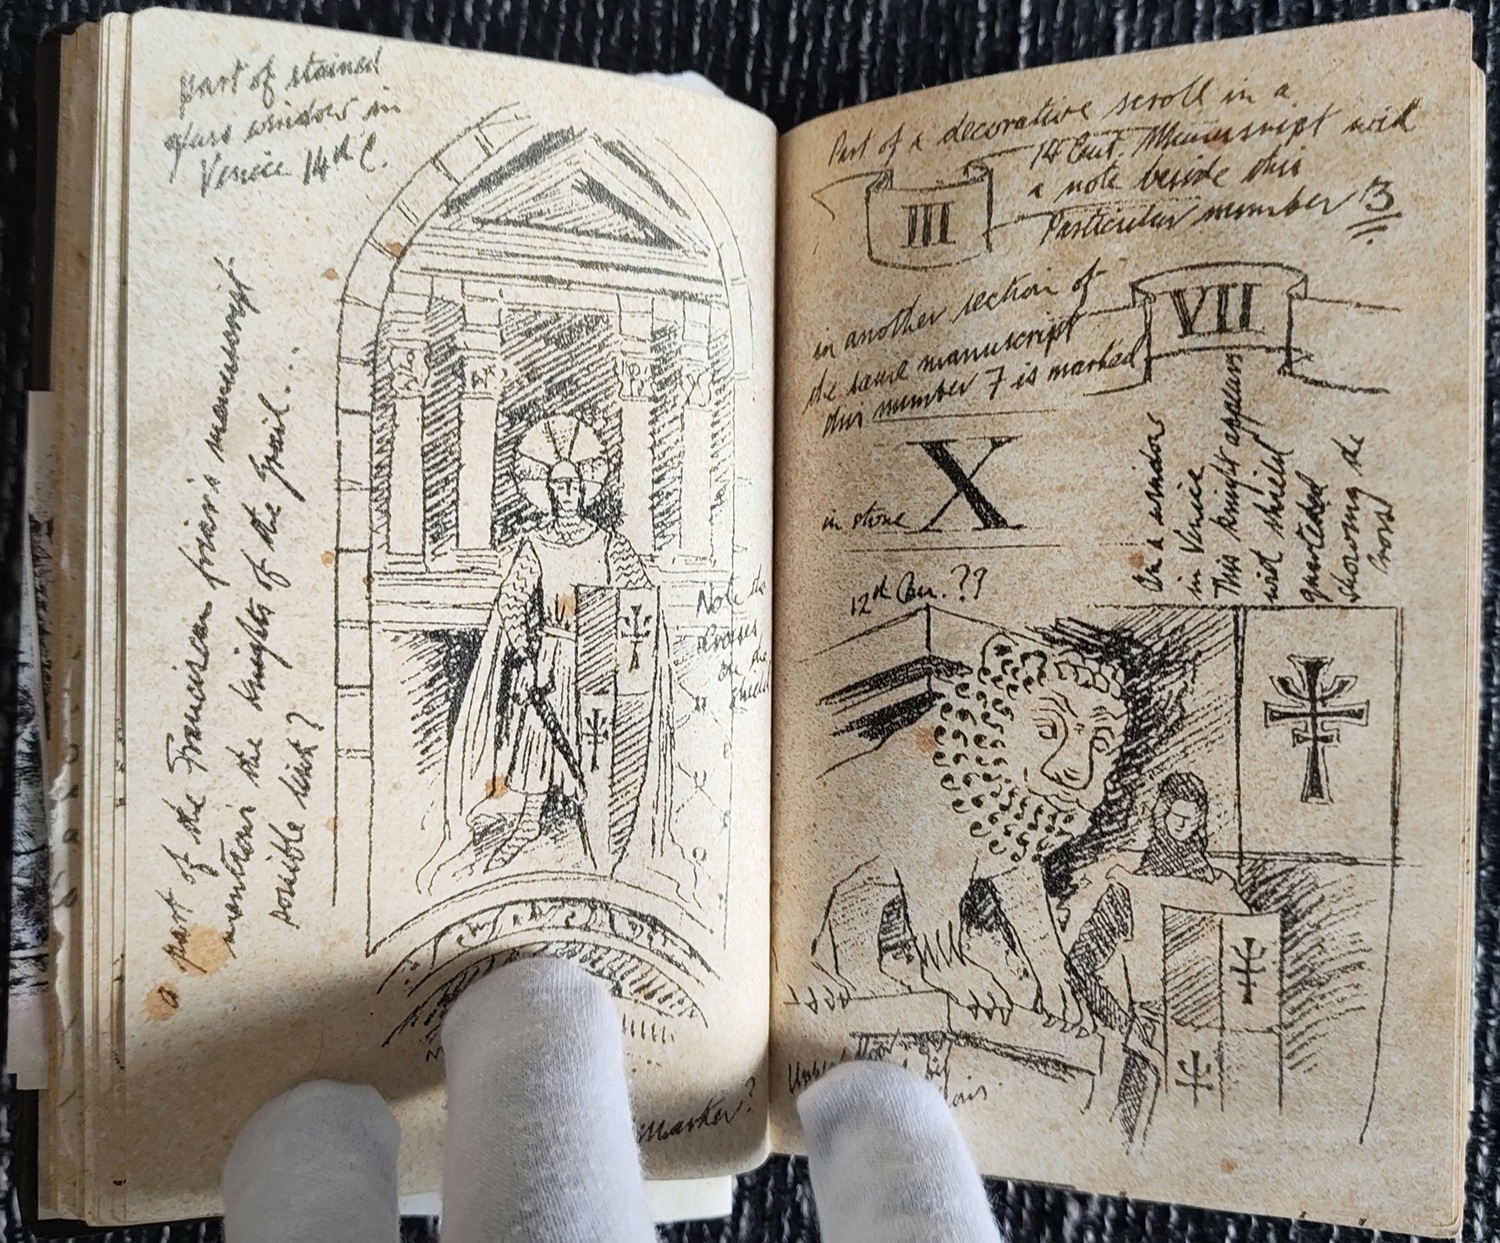 part of stained
glass window in
Venice 14th C.
a part of the Franciscan friar's manuscript
mentions the knights of the Grail...
possible link?
Note the
crosses
on the
shield
marker?
Part of a decorative scroll in a
14 Cent. Manuscript with
a note beside this
Particular number 3
III
in another section of
the same manuscript
this number 7 is marked
VII
in stone X
On a window
in Venice
This knight appears
with shield
quartered
showing the
Cross
12th Cen. ??